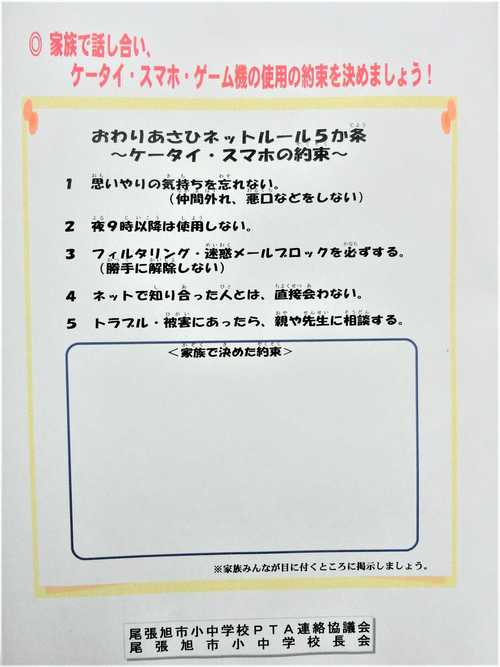 ◎ 家族で話し合い、
ケータイ・スマホ・ゲーム機の使用の約束を決めましょう！
おわりあさひネットルール５か条
～ケータイ・スマホの約束～
1 思いやりの気持ちを忘れない。
（仲間外れ、悪口などをしない）
2 夜９時以降は使用しない。
3 フィルタリング・迷惑メールブロックを必ずする。
（勝手に解除しない）
4 ネットで知り合った人とは、直接会わない。
5 トラブル・被害にあったら、親や先生に相談する。
＜家族で決めた約束＞
※家族みんなが目に付くところに掲示しましょう。
尾張旭市小中学校ＰＴＡ連絡協議会
尾張旭市小中学校長会